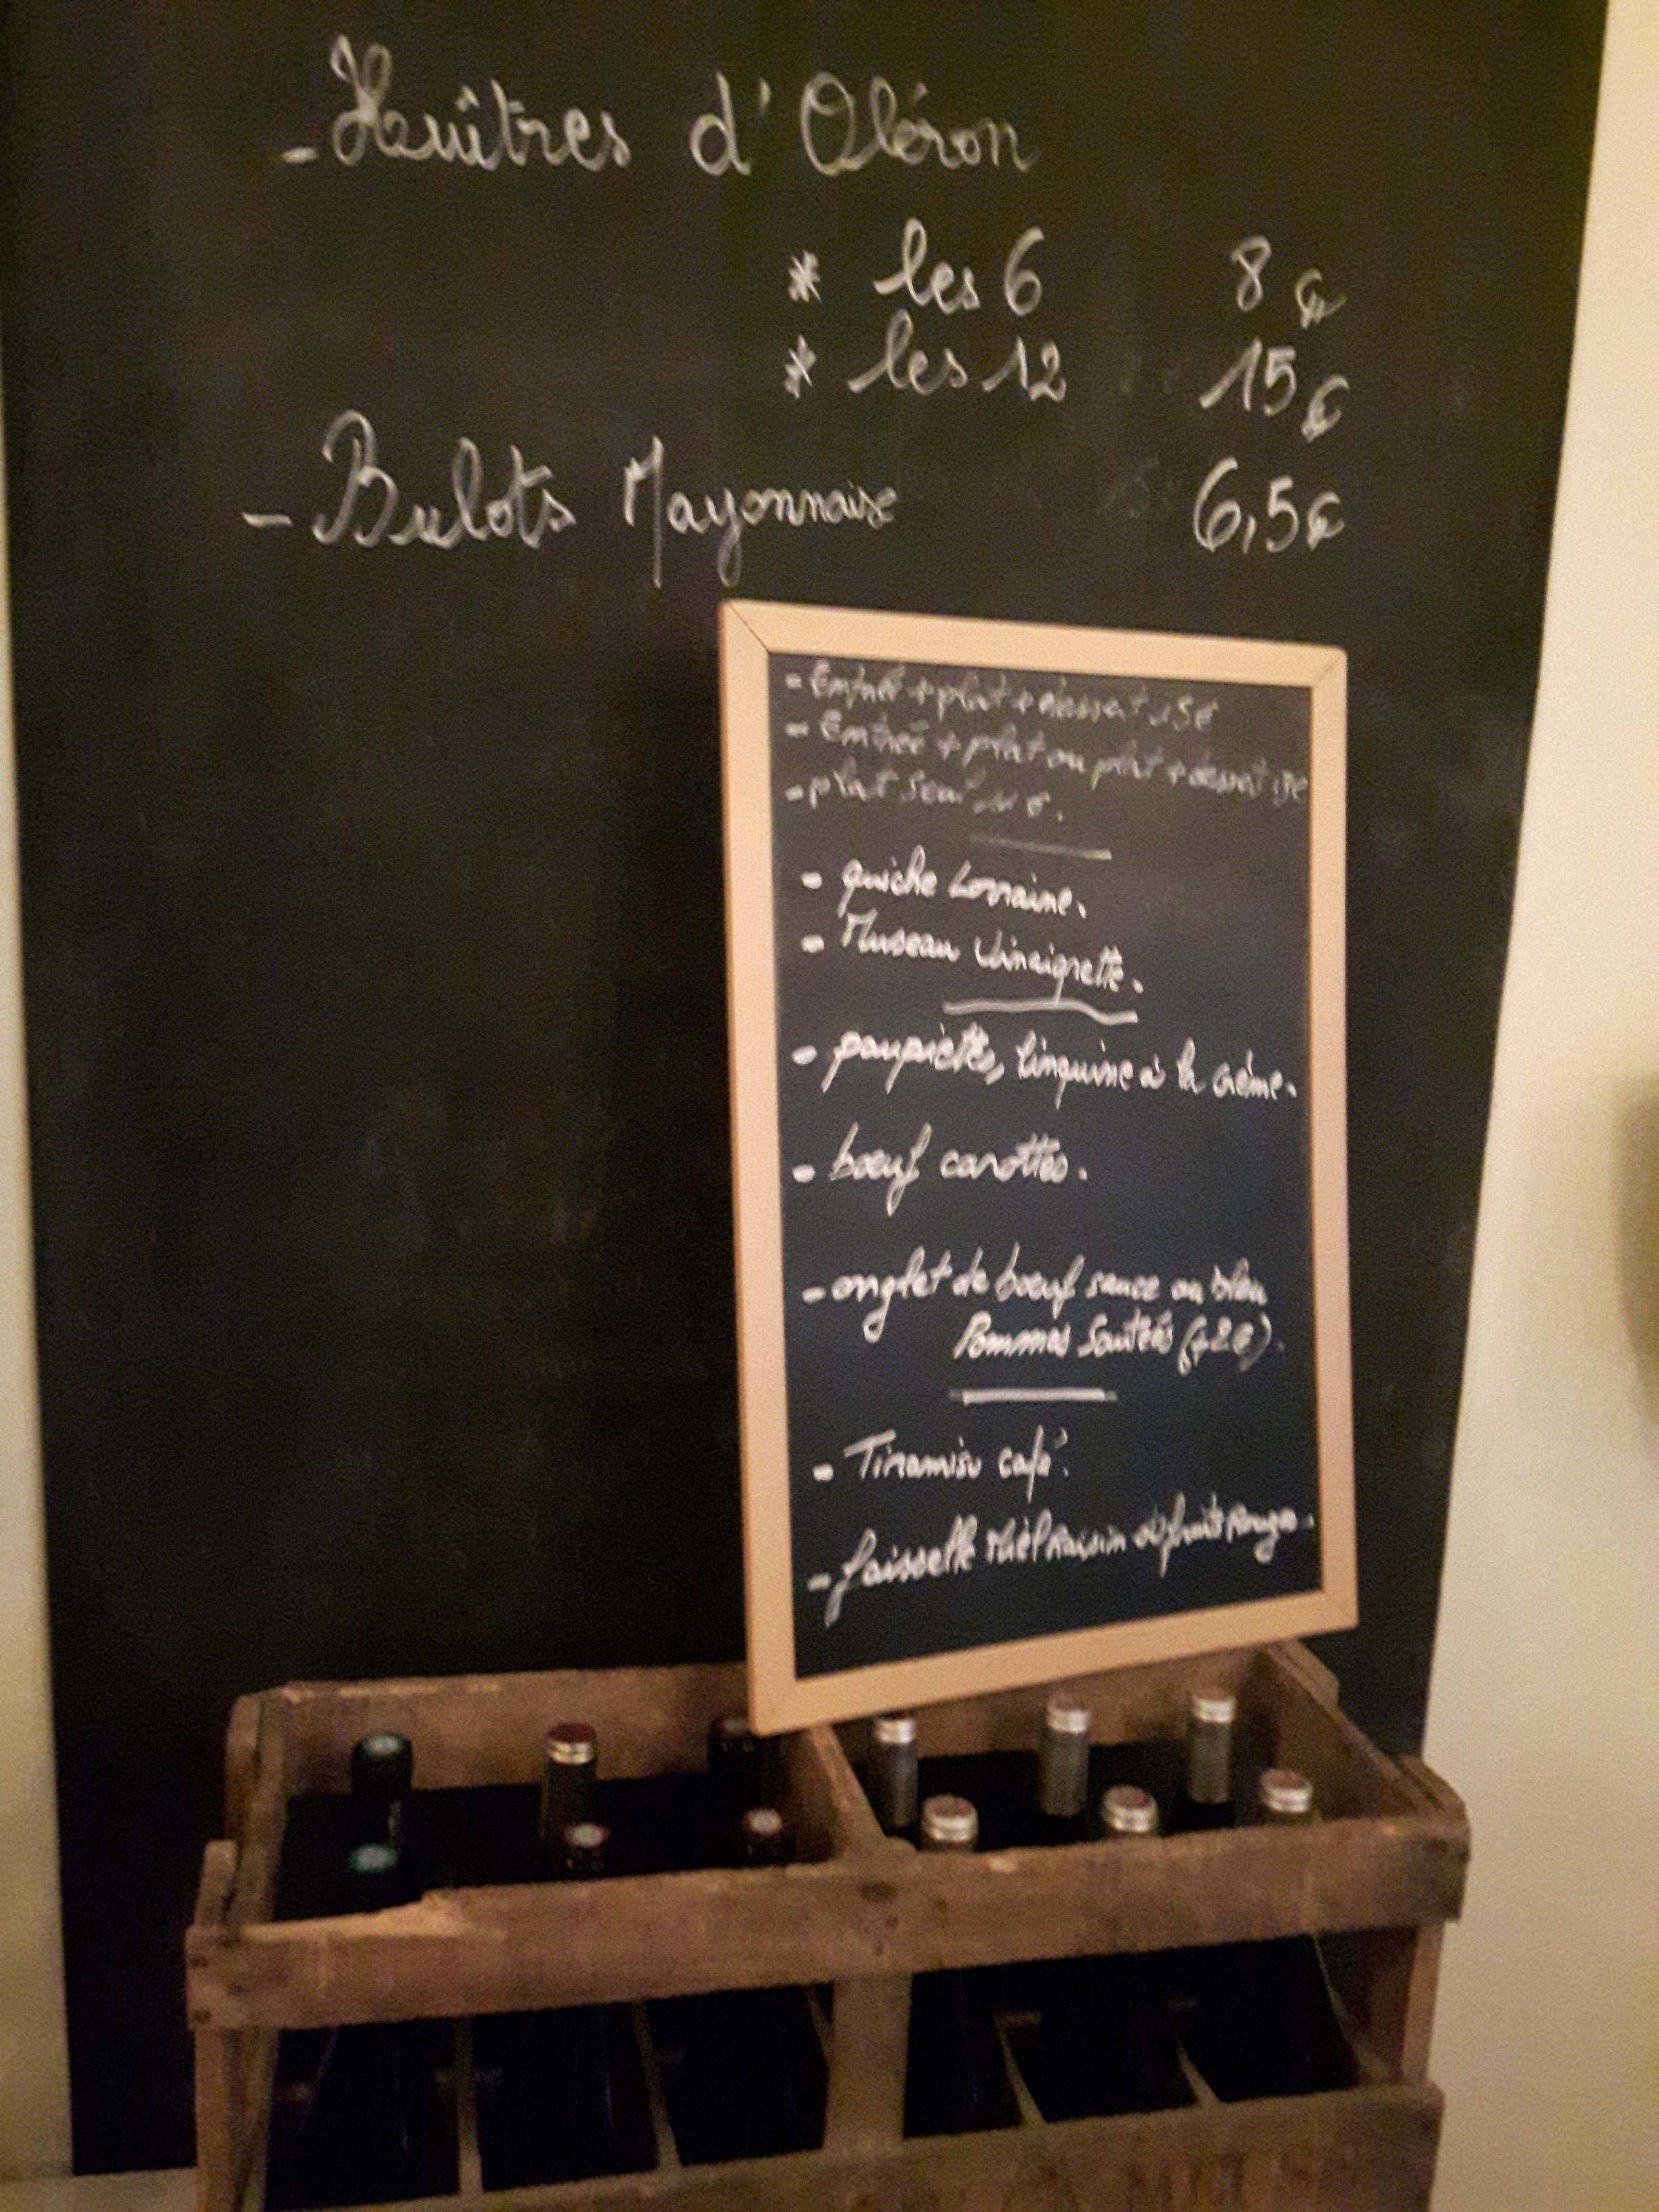 - Huîtres d'Oléron
* les 6 8 €
* les 12 15 €
- Bulots Mayonnaise 6,5€
- Entrée + plat + dessert 15€
- Entrée + plat ou plat + dessert 13€
- plat seul 11 €.
- quiche Lorraine.
- Museau Vinaigrette.
- paupiettes, linguine à la crème.
- bœuf carottes.
- onglet de bœuf sauce au bleu
Pommes Sautées (+2€).
- Tiramisu café.
- faisselle Miel Raisin où fruits Rouges.